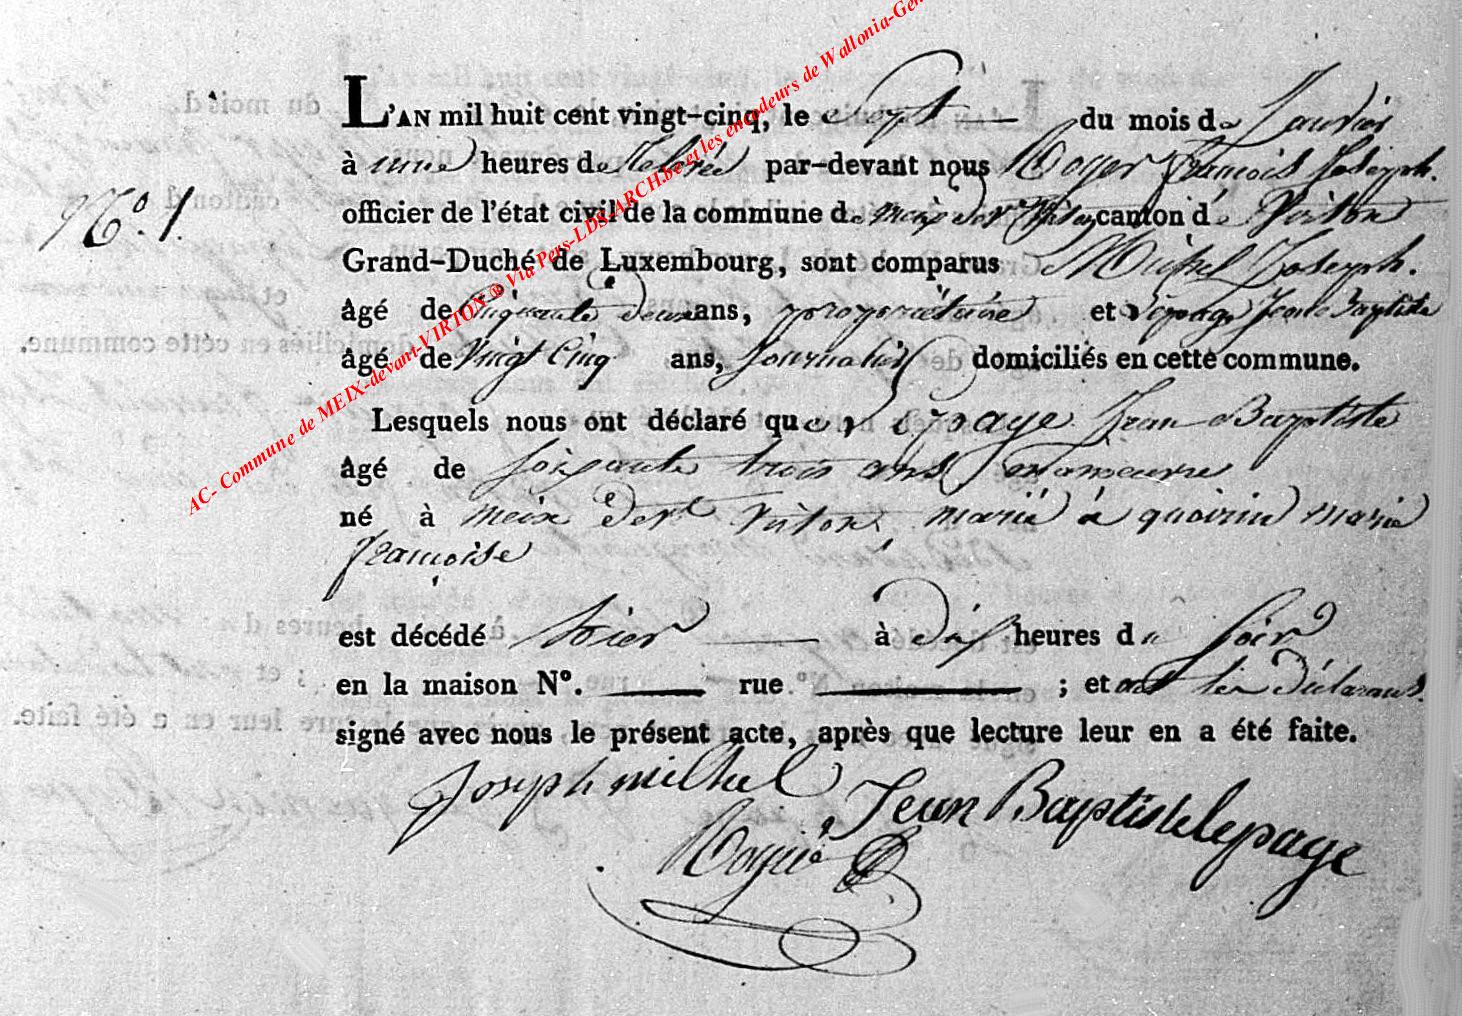 AC- Commune de MEIX-devant-VIRTON ® Via Pers-LDS-ARCH.be et les encodeurs de Wallonia-Gen
N.° 1.
L'AN mil huit cent vingt-cinq, le sept du mois de Janvier
à une heures de relevée par-devant nous François Joseph.
officier de l'état civil de la commune de meix devt Virton canton de Virton
Grand-Duché de Luxembourg, sont comparus Michel Joseph.
âgé de Cinquante deux ans, propriétaire et Lepage Jean Baptiste
âgé de Vingt Cinq ans, Journalier domiciliés en cette commune.
Lesquels nous ont déclaré que Lepage Jean Baptiste
âgé de soixante trois ans manoeuvre
né à meix devt virton, marié à quoirin marie
françoise
est décédé hier à dix heures du soir
en la maison N°. rue ; et ont les déclarans
signé avec nous le présent acte, après que lecture leur en a été faite.
Joseph michel Jean Baptiste lepage